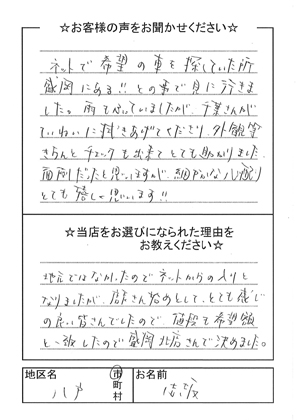 ☆お客様の声をお聞かせください☆
ネットで希望の車を探していた所
盛岡にある!! との事で見に行きま
した。雨も降っていましたが、千葉さんが
ていねいに拭きあげてくださり 外観等
きちんと チェックも出来て とても助かりました。
面倒だったと思いますが、細やかな心配り
とても嬉しく思います!!
☆当店をお選びになられた理由を
お教えください☆
地元ではなかったので ネットからの入りと
なりましたが、店長さん始めとして、とても感じ
の良い皆さんでしたので、値段も希望額
と一致したので 盛岡北店さんで決めました。
地区名
八戸
市
町
村
お名前